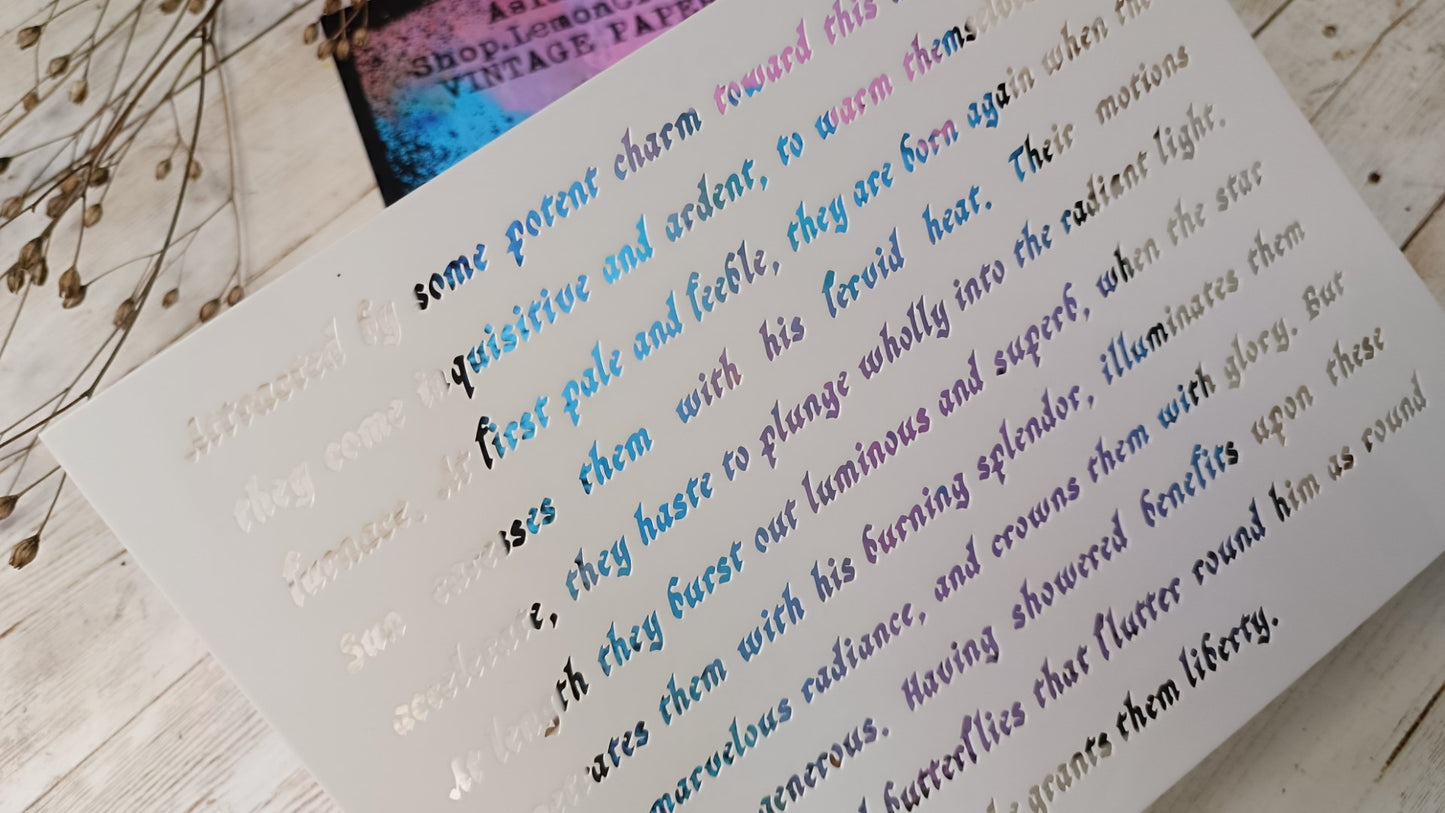 Shop.Lemon
VINTAGE PAPER
Attracted by some potent charm toward this
they come inquisitive and ardent, to warm themselves
furnace. At first pale and feeble, they are born again when the
Sun caresses them with his fervid heat. Their motions
accelerate, they haste to plunge wholly into the radiant light.
At length they burst out luminous and superb, when the star
them with his burning splendor, illuminates them
marvelous radiance, and crowns them with glory. But
generous. Having showered benefits upon these
butterflies that flutter round him as round
grants them liberty.